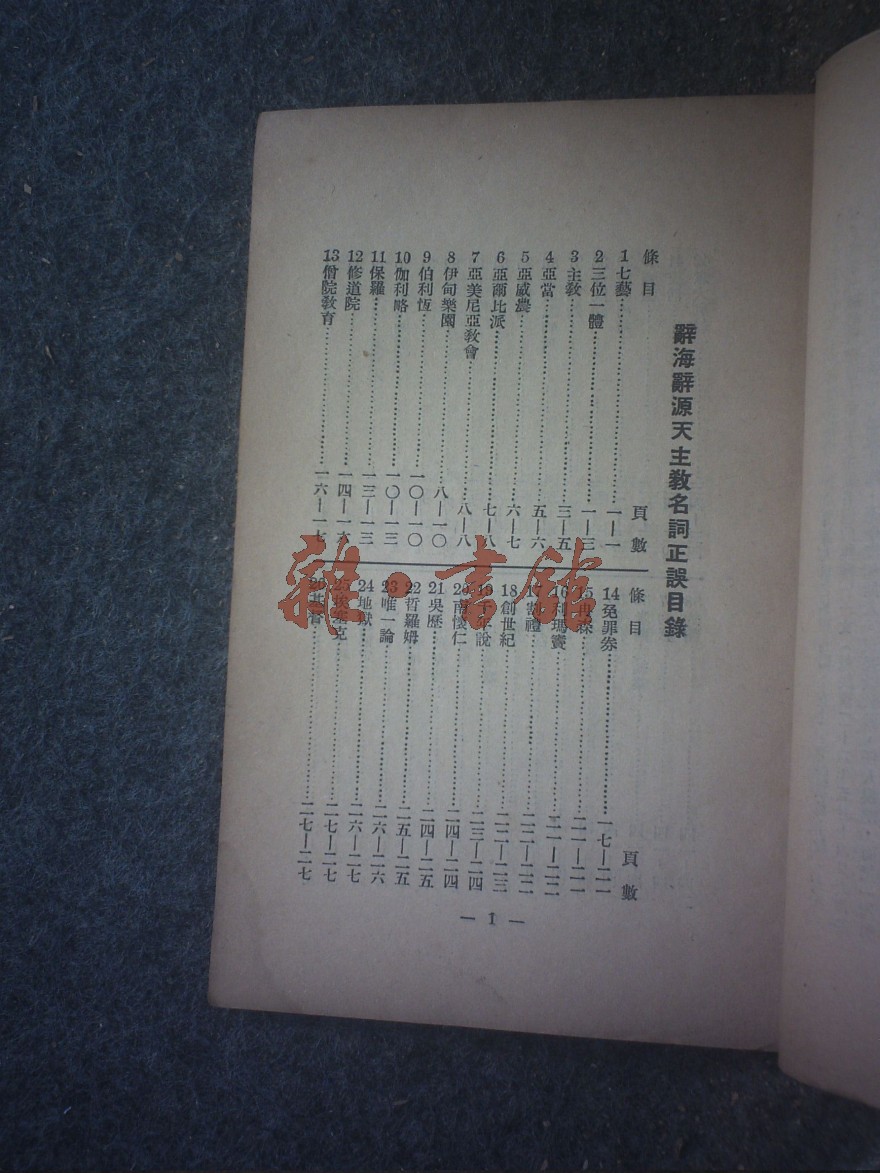 辭海辭源天主教名詞正誤目錄
條目 頁數
1 七藝 一—一
2 三位一體 一—三
3 主教 三—五
4 亞當 五—六
5 亞威農 六—七
6 亞爾比派 七—八
7 亞美尼亞教會 八—八
8 伊甸樂園 八—一〇
9 伯利恆 一〇—一〇
10 伽利略 一〇—一三
11 保羅 一三—一三
12 修道院 一四—一六
13 僧院教育 一六—一七
條目 頁數
14 免罪券 一七—二一
15 二一—二一
16 利瑪竇 二一—二二
17 割禮 二二—二二
18 創世紀 二二—二三
19 千年說 二三—二四
20 南懷仁 二四—二四
21 吳歷 二四—二五
22 哲羅姆 二五—二五
23 唯一論 二六—二六
24 地獄 二六—二七
25 埃塞克 二七—二七
26 基督 二七—二七
— 1 —
雜·書館